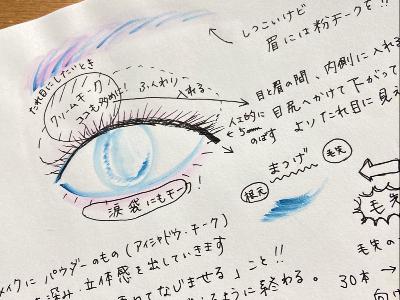 しつこいけど
眉には粉チークを!!
たれ目にしたいとき
クリームチーク
ココも多めに!
ふんわり
入れる
目と眉の間、内側に入れる
目尻へかけて下がって
より「たれ目に見え
人工的に
5mm
のばす
涙袋にもチーク!
まつげ
根元
毛先
毛先
毛先の
30本→
メイクに パウダーのもの(アイシャドウ・チーク)
深み・立体感を出していきます
なじませる」こと!!
ように終わる。